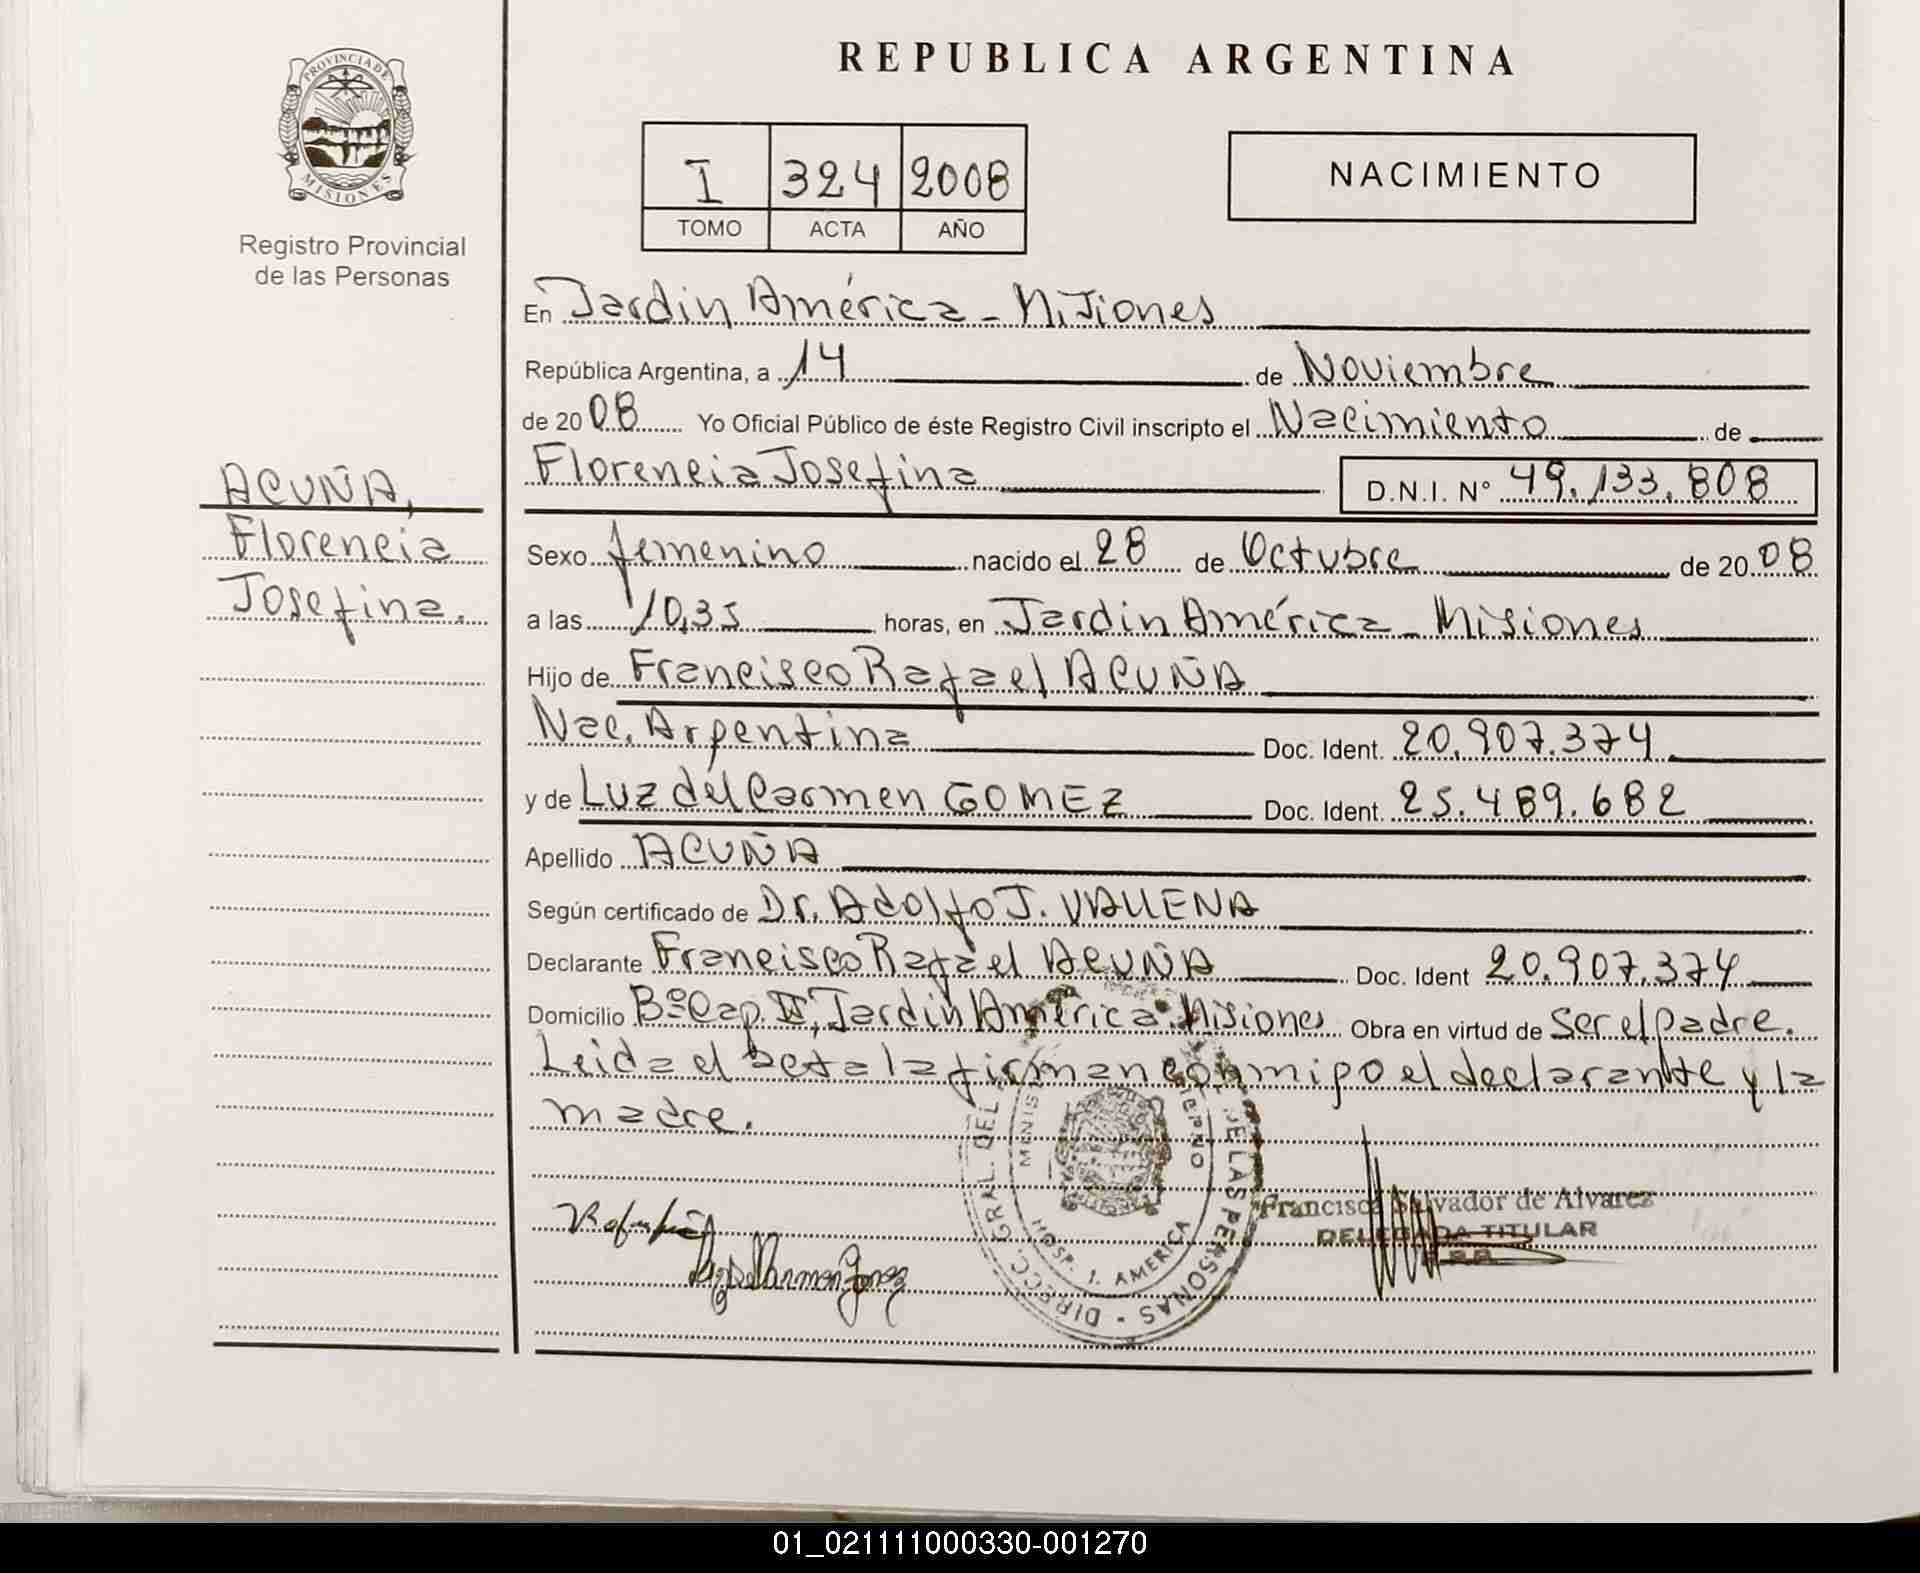 REPUBLICA ARGENTINA
PROVINCIA DE
MISIONES
Registro Provincial
de las Personas
I 324 2008
TOMO ACTA AÑO
NACIMIENTO
En Jardin América - Misiones
República Argentina, a 14 de Noviembre
de 2008 Yo Oficial Público de éste Registro Civil inscripto el Nacimiento de
Florencia Josefina D.N.I. N° 49.133.808
ACUÑA,
Florencia
Josefina.
Sexo femenino nacido el 28 de Octubre de 2008
a las 10,35 horas, en Jardin América - Misiones
Hijo de Francisco Rafael ACUÑA
Nac. Argentina Doc. Ident. 20.907.374
y de Luz del Carmen GOMEZ Doc. Ident. 25.489.682
Apellido ACUÑA
Según certificado de Dr. Adolfo J. VALLENA
Declarante Francisco Rafael ACUÑA Doc. Ident 20.907.374
Domicilio Bº Cap. II, Jardin América Misiones Obra en virtud de Ser el padre.
Leida el acta la firman conmigo el declarante y la
madre.
DIRECC. GRAL. DEL DE LAS PERSONAS
HOSP. J. AMERICA
Francisca Salvador de Alvarez
DELEGADA TITULAR
01_021111000330-001270